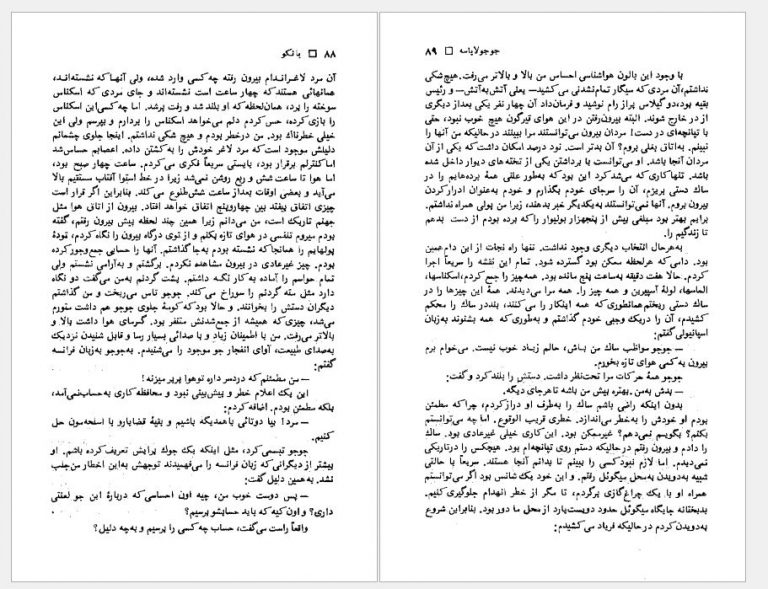 ۸۸ □ بانکو
آن مرد لاغراندام بیرون رفته چه‌کسی وارد شده، ولی آنهاکه نشسته‌اند،
همانهائی هستندکه چهار ساعت است نشسته‌اند و جای مردی که اسکناس
سوخته را برد، همان‌لحظه‌که او بلند شد و رفت پرشد. اما چه‌کسی‌این اسکناس
را بازی کرده، حس‌کردم دلم می‌خواهد اسکناس را بردارم و بپرسم ولی این
خیلی خطرناك بود. من درخطر بودم و هیچ شکی نداشتم. اینجا جلوی چشمانم
دلیلش موجود است‌که مرد لاغر خودش را به‌کشتن داده. اعصابم حساس‌شد
اماکنترلم برقرار بود، بایستی سریعاً فکری می‌کردم. ساعت چهار صبح بود،
اما هوا تا ساعت شش و ربع روشن نمی‌شد زیرا در خط استوا آفتاب مستقیم بالا
می‌آید و بعضی اوقات بعداز ساعت شش‌طلوع می‌کند. بنابراین اگر قرار است
چیزی اتفاق بیفتد بین چهاروپنج اتفاق خواهد افتاد. بیرون از اتاق هوا مثل
جهنم تاریك‌است، من می‌دانم زیرا همین چند لحظه پیش بیرون رفتم، گفته
بودم میروم نفسی در هوای تازه بکشم و از توی درگاه بیرون را نگاه‌کردم، توده
پولهایم را همانجاکه نشسته بودم به‌جا گذاشتم. آنها را حسابی جمع‌وجورکرده
بودم. چیز غیرعادی در بیرون مشاهده نکردم. برگشتم و به‌آرامی نشستم ولی
تمام حواسم را آماده به‌کار نگه داشتم. پشت گردنم به‌من می‌گفت دو نگاه
دارد مثل مته گردنم را سوراخ می‌کند. جوجو تاس می‌ریخت و من گذاشتم
دیگران دستش را بخوانند. و حالا بودکه کومهٔ جلوی جوجو هم داشت متورم
می‌شد، چیزی که همیشه از جمع‌شدنش متنفر بود. گرمای هوا داشت بالا و
بالاتر می‌رفت. من با اطمینان زیاد و با صدائی بسیار رسا و قابل شنیدن نزدیك
به‌صدای طبیعت، آوای انفجار جو موجود را می‌شنیدم. به‌جوجو به‌زبان فرانسه
گفتم:
— من مطمئنم که دردسر داره توهوا پرپر میزنه!
این یك اعلام خطر و پیش‌بینی نبود و محافظه‌کاری به‌حساب‌نمی‌آمد،
بلکه مطمئن بودم. اضافه‌کردم:
— مرد! بیا دوتائی باهمدیگه باشیم و بقیهٔ قضایارو با اسلحه‌مون حل
کنیم.
جوجو تبسمی‌کرد، مثل اینکه یك جوك برایش تعریف‌کرده باشم. او
بیشتر از دیگرانی که زبان فرانسه را می‌فهمیدند توجهش به‌این اخطار من‌جلب
نشد. به‌همین دلیل گفت:
— پس دوست خوب من، چیه اون احساسی که دربارهٔ این جو لعنتی
داری؟ و اون کیه که باید حسابشو برسیم؟
واقعاً راست می‌گفت، حساب چه‌کسی را برسیم و به‌چه دلیل؟
جوجولاپاسه □ ۸۹
با وجود این بالون هواشناسی احساس من بالا و بالاتر می‌رفت. هیچ‌شکی
نداشتم، آن مردی که سیگار تمام‌نشدنی می‌کشید— یعنی آتش‌به‌آتش— و رئیس
بقیه بود، دوگیلاس پراز رام نوشید و فرمان‌داد آن چهار نفر یکی بعداز دیگری
از در خارج شوند. البته بیرون‌رفتن در این هوای قیرگون هیچ خوب نبود، حتی
با تپانچه‌ای در دست! مردان بیرون می‌توانستند مرا ببینند درحالیکه من آنها را
نبینم. به‌اتاق بغلی بروم؟ آن بدتر است. نود درصد امکان داشت‌که یکی از آن
مردان آنجا باشد. او می‌توانست با برداشتن یکی از تخته‌های دیوار داخل شده
باشد. تنهاکاری که می‌شدکرد این بود که به‌طور علنی همهٔ برده‌هایم را در
ساك دستی بریزم، آن را سرجای خودم بگذارم و خودم به‌عنوان ادرارکردن
بیرون بروم. آنها نمی‌توانستند به‌یکدیگر خبر بدهند، زیرا من پولی همراه نداشتم.
برایم بهتر بود مبلغی بیش از پنجهزار بولیوار راکه برده بودم از دست بدهم
تا زندگیم را.
به‌هرحال انتخاب دیگری وجود نداشت. تنها راه نجات از این دام همین
بود. دامی‌که هرلحظه ممکن بود گسترده شود. تمام این نقشه را سریعاً اجرا
کردم. حالا هفت دقیقه به‌ساعت پنج مانده بود. همه‌چیز را جمع‌کردم، اسکناسها،
الماسها، لولهٔ آسپیرین و همه چیز را. همه مرا می‌دیدند. همهٔ این چیزها را در
ساك دستی ریختم همانطوری‌که همه اینکار را می‌کنند، بنددر ساك را محکم
کشیدم، آن را دریك وجبی خودم گذاشتم و به‌طوری که همه بشنوند به‌زبان
اسپانیولی گفتم:
— جوجو مواظب ساك من باش، حالم زیاد خوب نیست. می‌خوام برم
بیرون یه‌کمی هوای تازه بخورم.
جوجو همهٔ حرکات مرا تحت‌نظر داشت. دستش را بلندکرد و گفت:
— بدش به‌من. بهتره پیش من باشه تاهرجای دیگه.
بدون اینکه راضی باشم ساك را به‌طرف او درازکردم، چراکه مطمئن
بودم او خودش را به‌خطر می‌اندازد. خطری قریب الوقوع. اما چه می‌توانستم
بکنم؟ بگویم نمی‌دهم؟ غیرممکن بود. این کاری خیلی غیرعادی بود. ساك
را دادم و بیرون رفتم درحالیکه دستم روی تپانچه‌ام بود. هیچکس را درتاریکی
نمی‌دیدم. اما لازم نبودکسی را ببینم تا بدانم آنجا هستند. سریعاً با حالتی
شبیه به‌دویدن به‌محل میگوئل رفتم. و این خود یك شانس بود اگر می‌توانستم
همراه او با یك چراغ‌گازی برگردم، تا مگر از خطر انهدام جلوگیری کنیم.
بدبختانه جایگاه میگوئل حدود دویست‌یارد از محل ما دور بود. بنابراین شروع
به‌دویدن‌کردم درحالیکه فریاد می‌کشیدم: